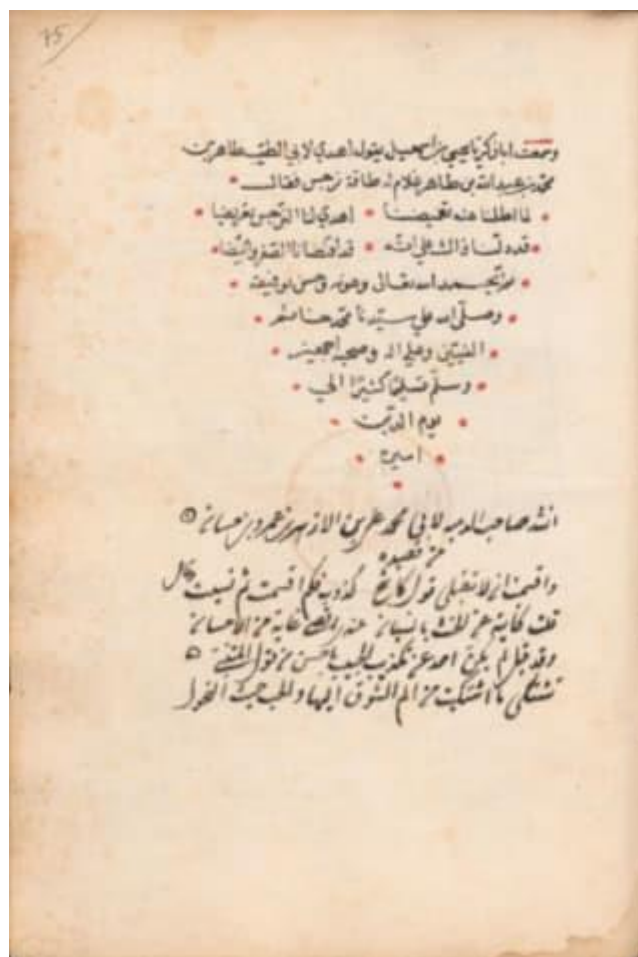 75
وسمعت ابا زكريا يحيى بن اسمعيل يقول اهدى لابي الطيب طاهر بن
محمد بن عبد الله بن طاهر غلام له طاقة نرجس فقال
لما اطلنا عنه تغميضا اهدى لنا النرجس تعريضا
فدلنا ذاك على انه قد اقتضانا الصفر والبيضا
تم بحمد الله تعالى وعونه وحسن توفيقه
وصلى الله على سيدنا محمد خاتم
النبيين وعلى اله وصحبه اجمعين
وسلم تسليما كثيرا الى
يوم الدين
امين
صاحب لابي محمد بن الازهر بن عمرو بن
من قصيدة
واقسمت ان لا تقبلي قول كاشح فكم اقسمت ثم نسيت قال
قلت كناية عن بالنسيان عنه غاية من الاحسان
وقد قيل احد عن الحبيب احسن من قول المتنبي
تشتكي ما اشتكيت من الم الشوق اليها والحب حيث النحول